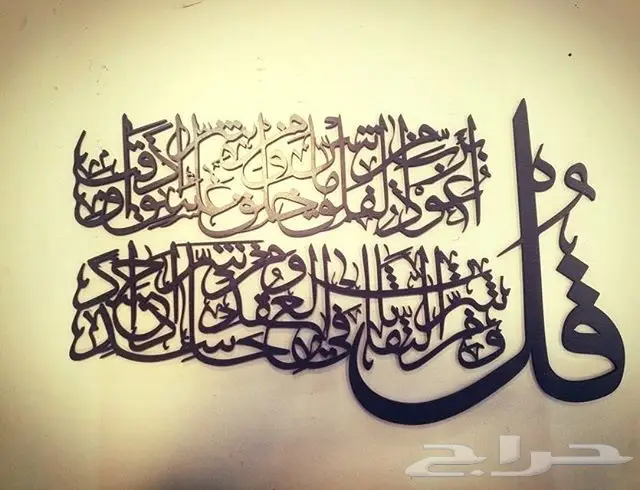 قل
أعوذ برب الفلق من شر ما خلق ومن شر غاسق إذا وقب
ومن شر النفاثات في العقد ومن شر حاسد إذا حسد
حراج